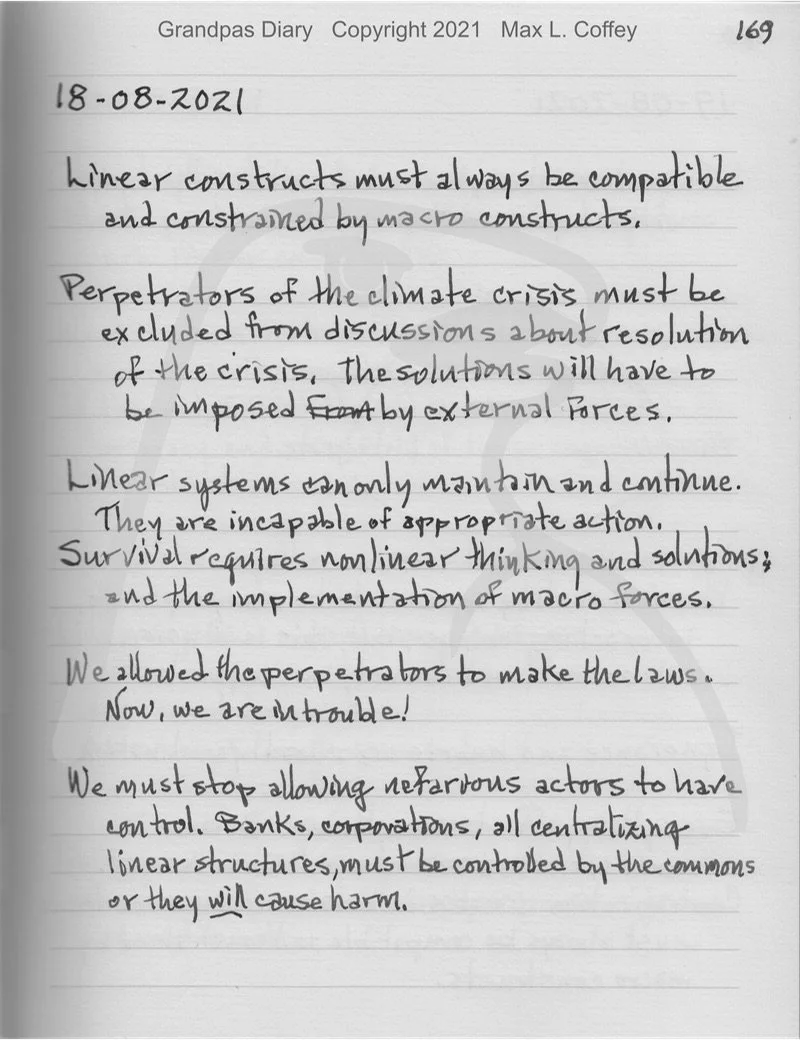 Grandpas Diary Copyright 2021 Max L. Coffey
169
18-08-2021
Linear constructs must always be compatible
and constrained by macro constructs.
Perpetrators of the climate crisis must be
excluded from discussions about resolution
of the crisis. The solutions will have to
be imposed by external forces.
Linear systems can only maintain and continue.
They are incapable of appropriate action.
Survival requires nonlinear thinking and solutions;
and the implementation of macro forces.
We allowed the perpetrators to make the laws.
Now, we are in trouble!
We must stop allowing nefarious actors to have
control. Banks, corporations, all centralizing
linear structures, must be controlled by the commons
or they will cause harm.